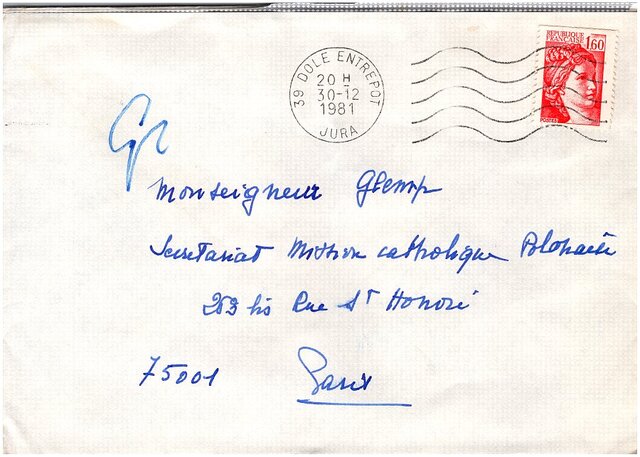 RÉPUBLIQUE FRANÇAISE
1,60
POSTES
39 DOLE ENTREPOT
20 H
30-12
1981
JURA
Monseigneur Glemp
Secretariat Mission catholique Polonaise
263 bis Rue St Honoré
75001 Paris